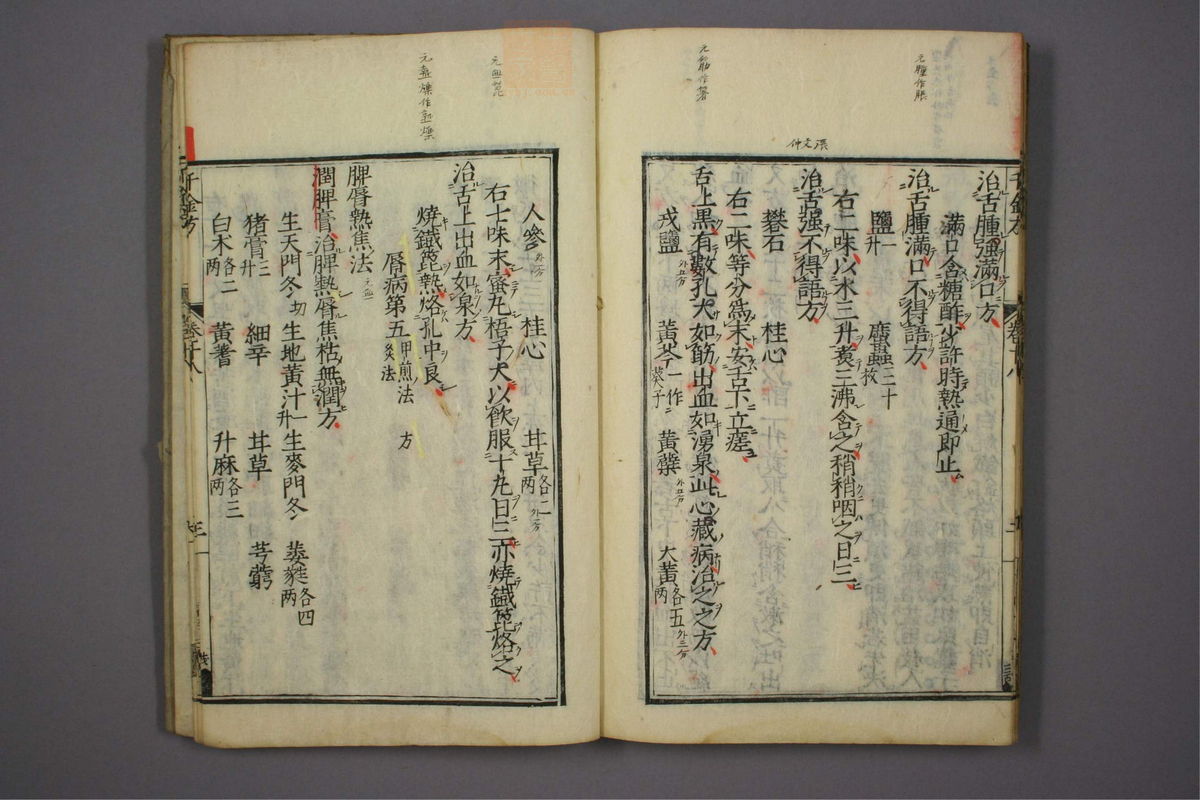 治舌腫強滿口方
滿口含糖酢少許時熱通即止
治舌腫滿口不得語方
鹽一升 䗪蟲三十枚
右二味以水三升煮三沸含之稍稍咽之日三
治舌強不得語方
礬石 桂心
右二味等分爲末安舌下立瘥
舌上黑有數孔大如筯出血如湧泉此心藏病治之之方
戎鹽 黃芩一作葵子 黃蘗 大黃各五兩
人參 桂心 甘草各二兩
右七味末蜜丸梧子大以飲服十丸日三亦燒鐵篦烙之
治舌上出血如泉方
燒鐵篦熟烙孔中良
唇病第五 甲煎法 方 灸法
脾脣熱焦法
潤脾膏治脾熱脣焦枯無潤方
生天門冬切 生地黃汁一升 生麥門冬 萎蕤各四兩
猪膏三升 細辛 甘草 芎藭
白术各二兩 黃耆 升麻各三兩
元腫作脹
元筋作箸
元血
千金方
卷二十六